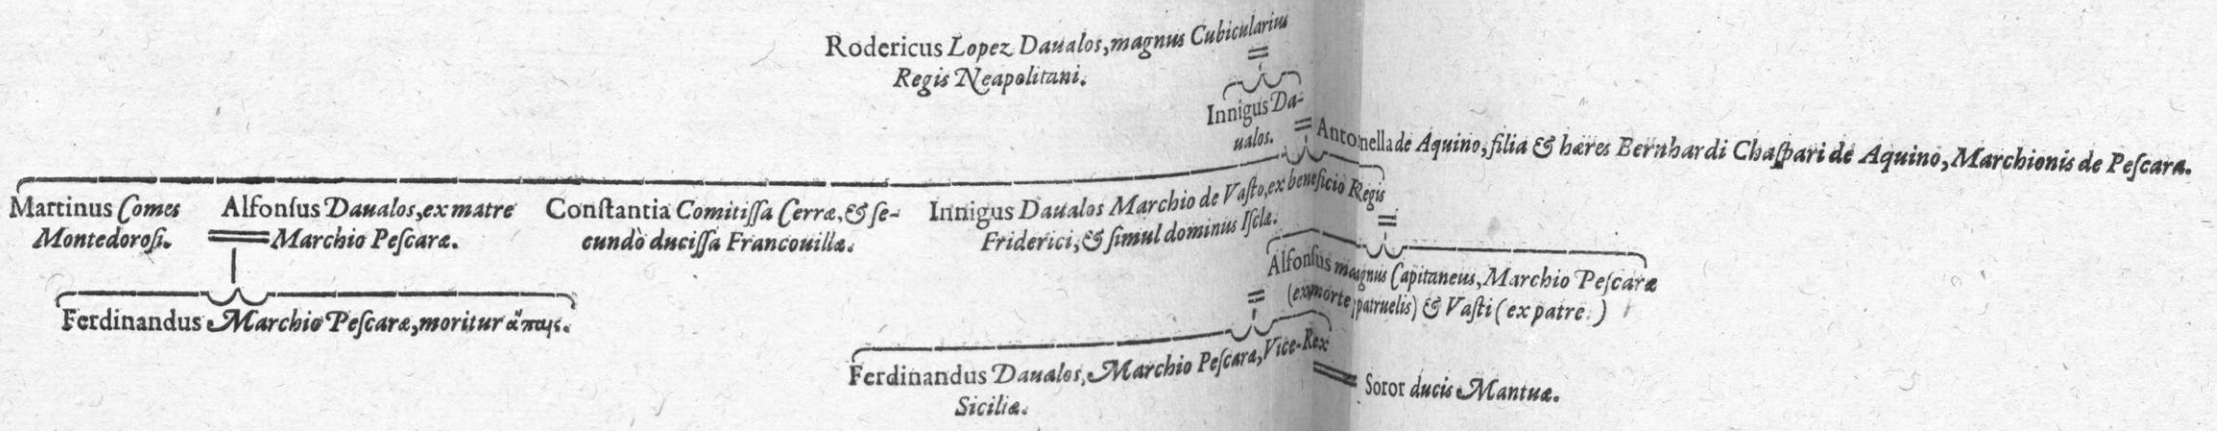 Rodericus Lopez Daualos, magnus Cubicularius
Regis Neapolitani.
Innigus Da-
ualos.
Antonella de Aquino, filia & hæres Bernhardi Chaſpari de Aquino, Marchionis de Peſcara.
Martinus Comes
Montedoroſi.
Alfonſus Daualos, ex matre
Marchio Peſcaræ.
Conſtantia Comitiſſa Cerræ, & ſe-
cundò duciſſa Francouillæ.
Innigus Daualos Marchio de Vaſto, ex beneficio Regis
Friderici, & ſimul dominus Iſclæ.
Alfonſus magnus Capitaneus, Marchio Peſcaræ
(ex morte patruelis) & Vaſti (ex patre.)
Ferdinandus Marchio Peſcaræ, moritur ἄπαις.
Ferdinandus Daualos, Marchio Peſcaræ, Vice-Rex
Siciliæ.
Soror ducis Mantuæ.